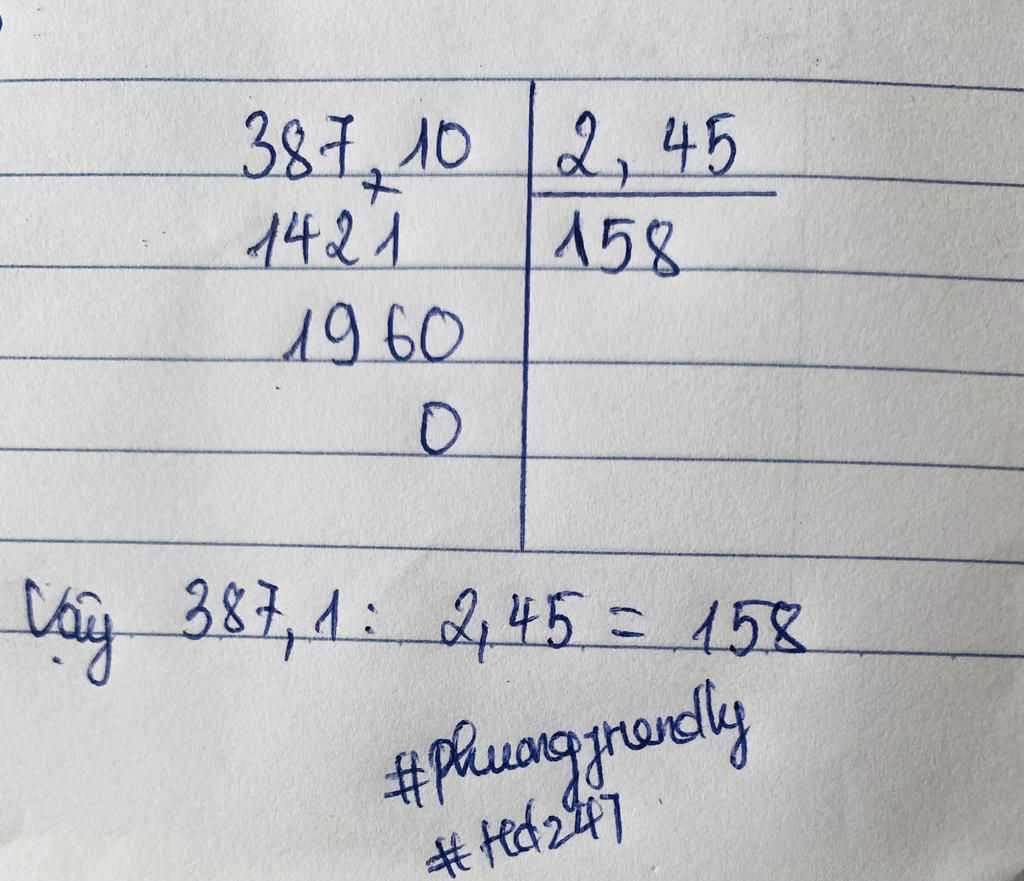 387,10 2,45
1421 158
1960
0
Vậy 387,1 : 2,45 = 158
#Phuongfriendly
#Hd247